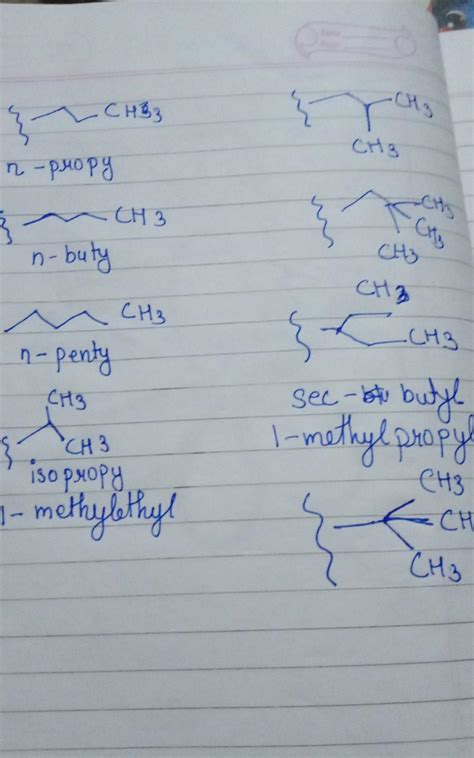 CH33
n-propy
CH3
n-buty
CH3
n-penty
CH3
CH3
isopropy
1-methylethyl
CH3
CH3
CH3
CH3
CH3
CH3
CH3
sec-butyl
1-methyl propyl
CH3
CH
CH3